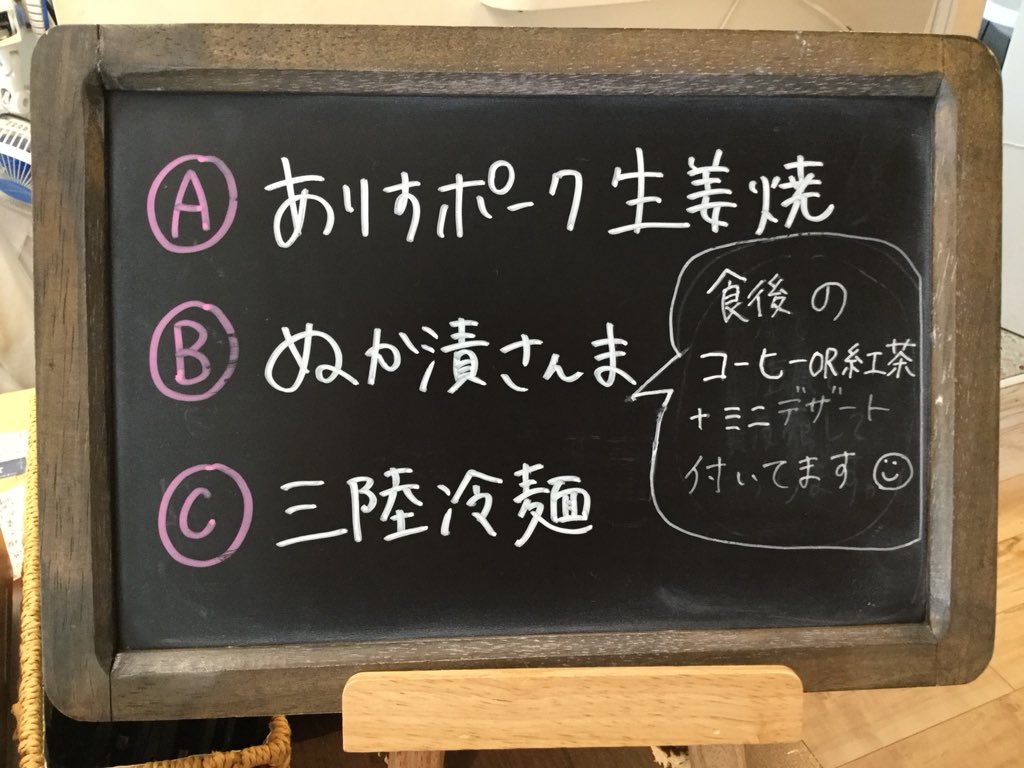 Ⓐ ありすポーク生姜焼
Ⓑ ぬか漬さんま
Ⓒ 三陸冷麺
食後の
コーヒーOR紅茶
+ミニデザート
付いてます☺